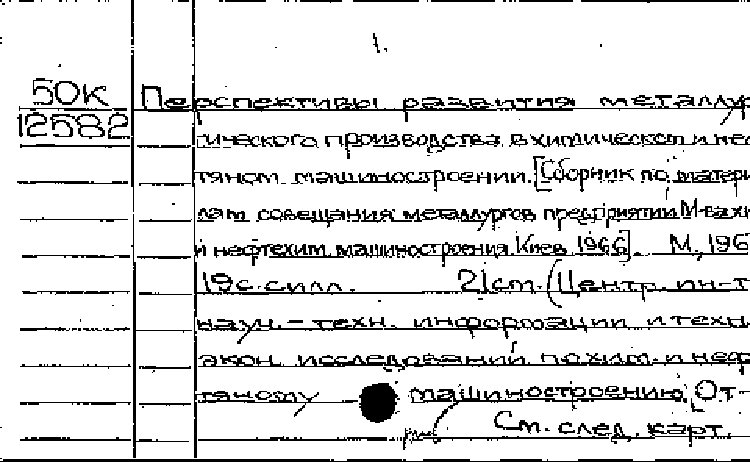 1.
50К Перспективы развития металлур
12582 гического производства в химическом и неф
тяном машиностроении. [Сборник по матери
лам совещания металлургов предприятий М-ва хи
и нефтехим. машиностроения. Киев 1966]. М., 196
19с. с илл. 21 см. (Центр. ин-т
науч. - техн. информации и техн.
экон. исследований по хим. и неф
тяному машиностроению. От-
См. след. карт.